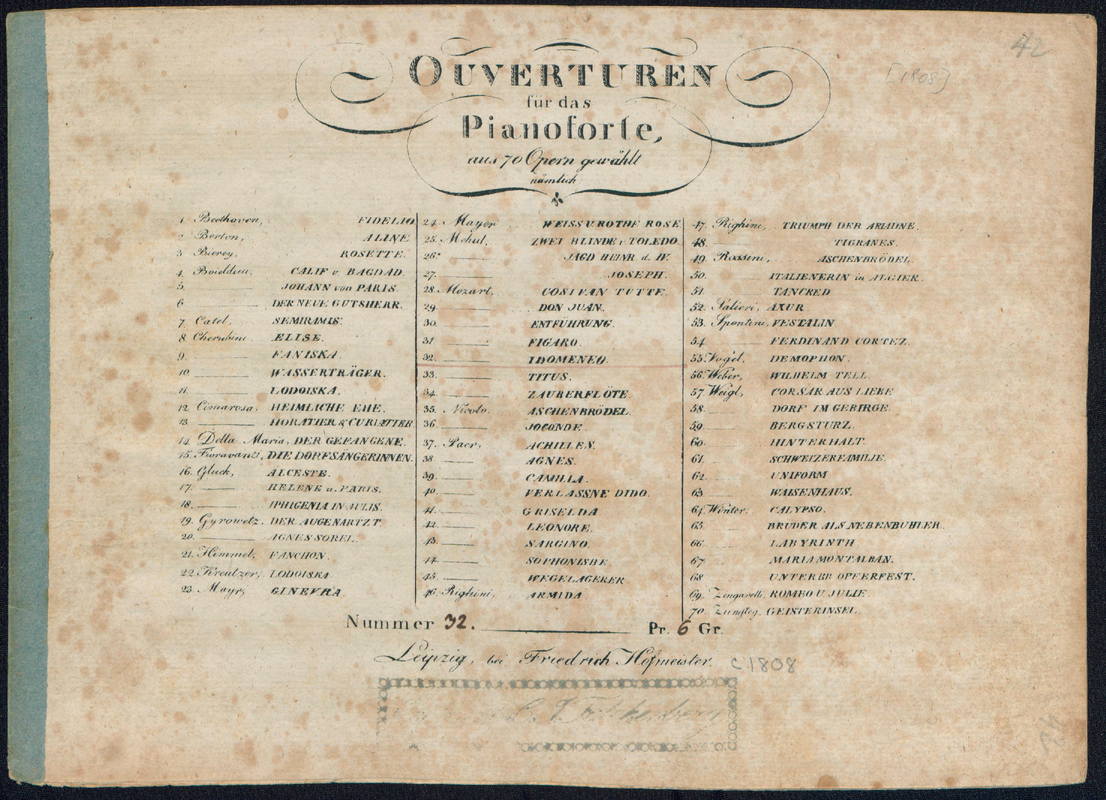 42
[1808]
OUVERTUREN
für das
Pianoforte,
aus 70 Opern gewählt
nämlich
1. Beethoven, FIDELIO
2. Berton, ALINE
3 Bierey, ROSETTE.
4. Boieldieu, CALIF v. BAGDAD.
5. JOHANN von PARIS.
6 DER NEUE GUTSHERR.
7. Catel, SEMIRAMIS.
8. Cherubini ELISE.
9. FANISKA.
10. WASSERTRÄGER.
11. LODOISKA.
12. Cimarosa, HEIMLICHE EHE.
13. HORATIER & CURIATIER
14. Della Maria, DER GEFANGENE.
15. Fioravanti, DIE DORFSÄNGERINNEN.
16. Gluck, ALCESTE.
17. HELENE u. PARIS.
18. IPHIGENIA IN AULIS.
19. Gyrowetz. DER AUGENARTZT
20. AGNES SOREL.
21. Himmel, FANCHON.
22. Kreutzer, LODOISKA
23. Mayr, GINEVRA
24. Mayer WEISS U ROTHE ROSE
25. Mehul, ZWEI BLINDE v. TOLEDO.
26. JAGD HEINR d. IV.
27. JOSEPH.
28. Mozart, COSI VAN TUTTE.
29. DON JUAN.
30. ENTFÜHRUNG.
31 FIGARO.
32. IDOMENEO.
33. TITUS.
34. ZAUBERFLÖTE.
35. Nicolo. ASCHENBRÖDEL.
36. JOCONDE.
37. Paer, ACHILLES.
38 AGNES.
39. CAMILLA.
40. VERLASSNE DIDO.
41. GRISELDA
42. LEONORE.
43. SARGINO.
44. SOPHONISBE
45. WEGELAGERER
46. Righini, ARMIDA.
47. Righini, TRIUMPH DER ARIADNE.
48. TIGRANES
49. Rossini, ASCHENBRÖDEL.
50. ITALIENERIN in ALGIER.
51. TANCRED
52. Salieri, AXUR.
53. Spontini, VESTALIN
54. FERDINAND CORTEZ.
55. Vogel, DEMOPHON.
56. Weber, WILHELM TELL.
57 Weigl, CORSAR AUS LIEBE
58. DORF IM GEBIRGE.
59. BERGSTURZ.
60. HINTERHALT.
61. SCHWEIZERFAMILIE.
62. UNIFORM
63 WAISENHAUS.
64. Winter. CALYPSO.
65. BRUDER ALS NEBENBUHLER.
66. LABYRINTH
67. MARIA MONTALBAN.
68 UNTERBR OPFERFEST.
69. Zingarelli, ROMEO U JULIE.
70. Zumsteg, GEISTERINSEL.
Nummer 32. Pr. 6 Gr.
Leipzig, bei Friedrich Hofmeister.
c1808